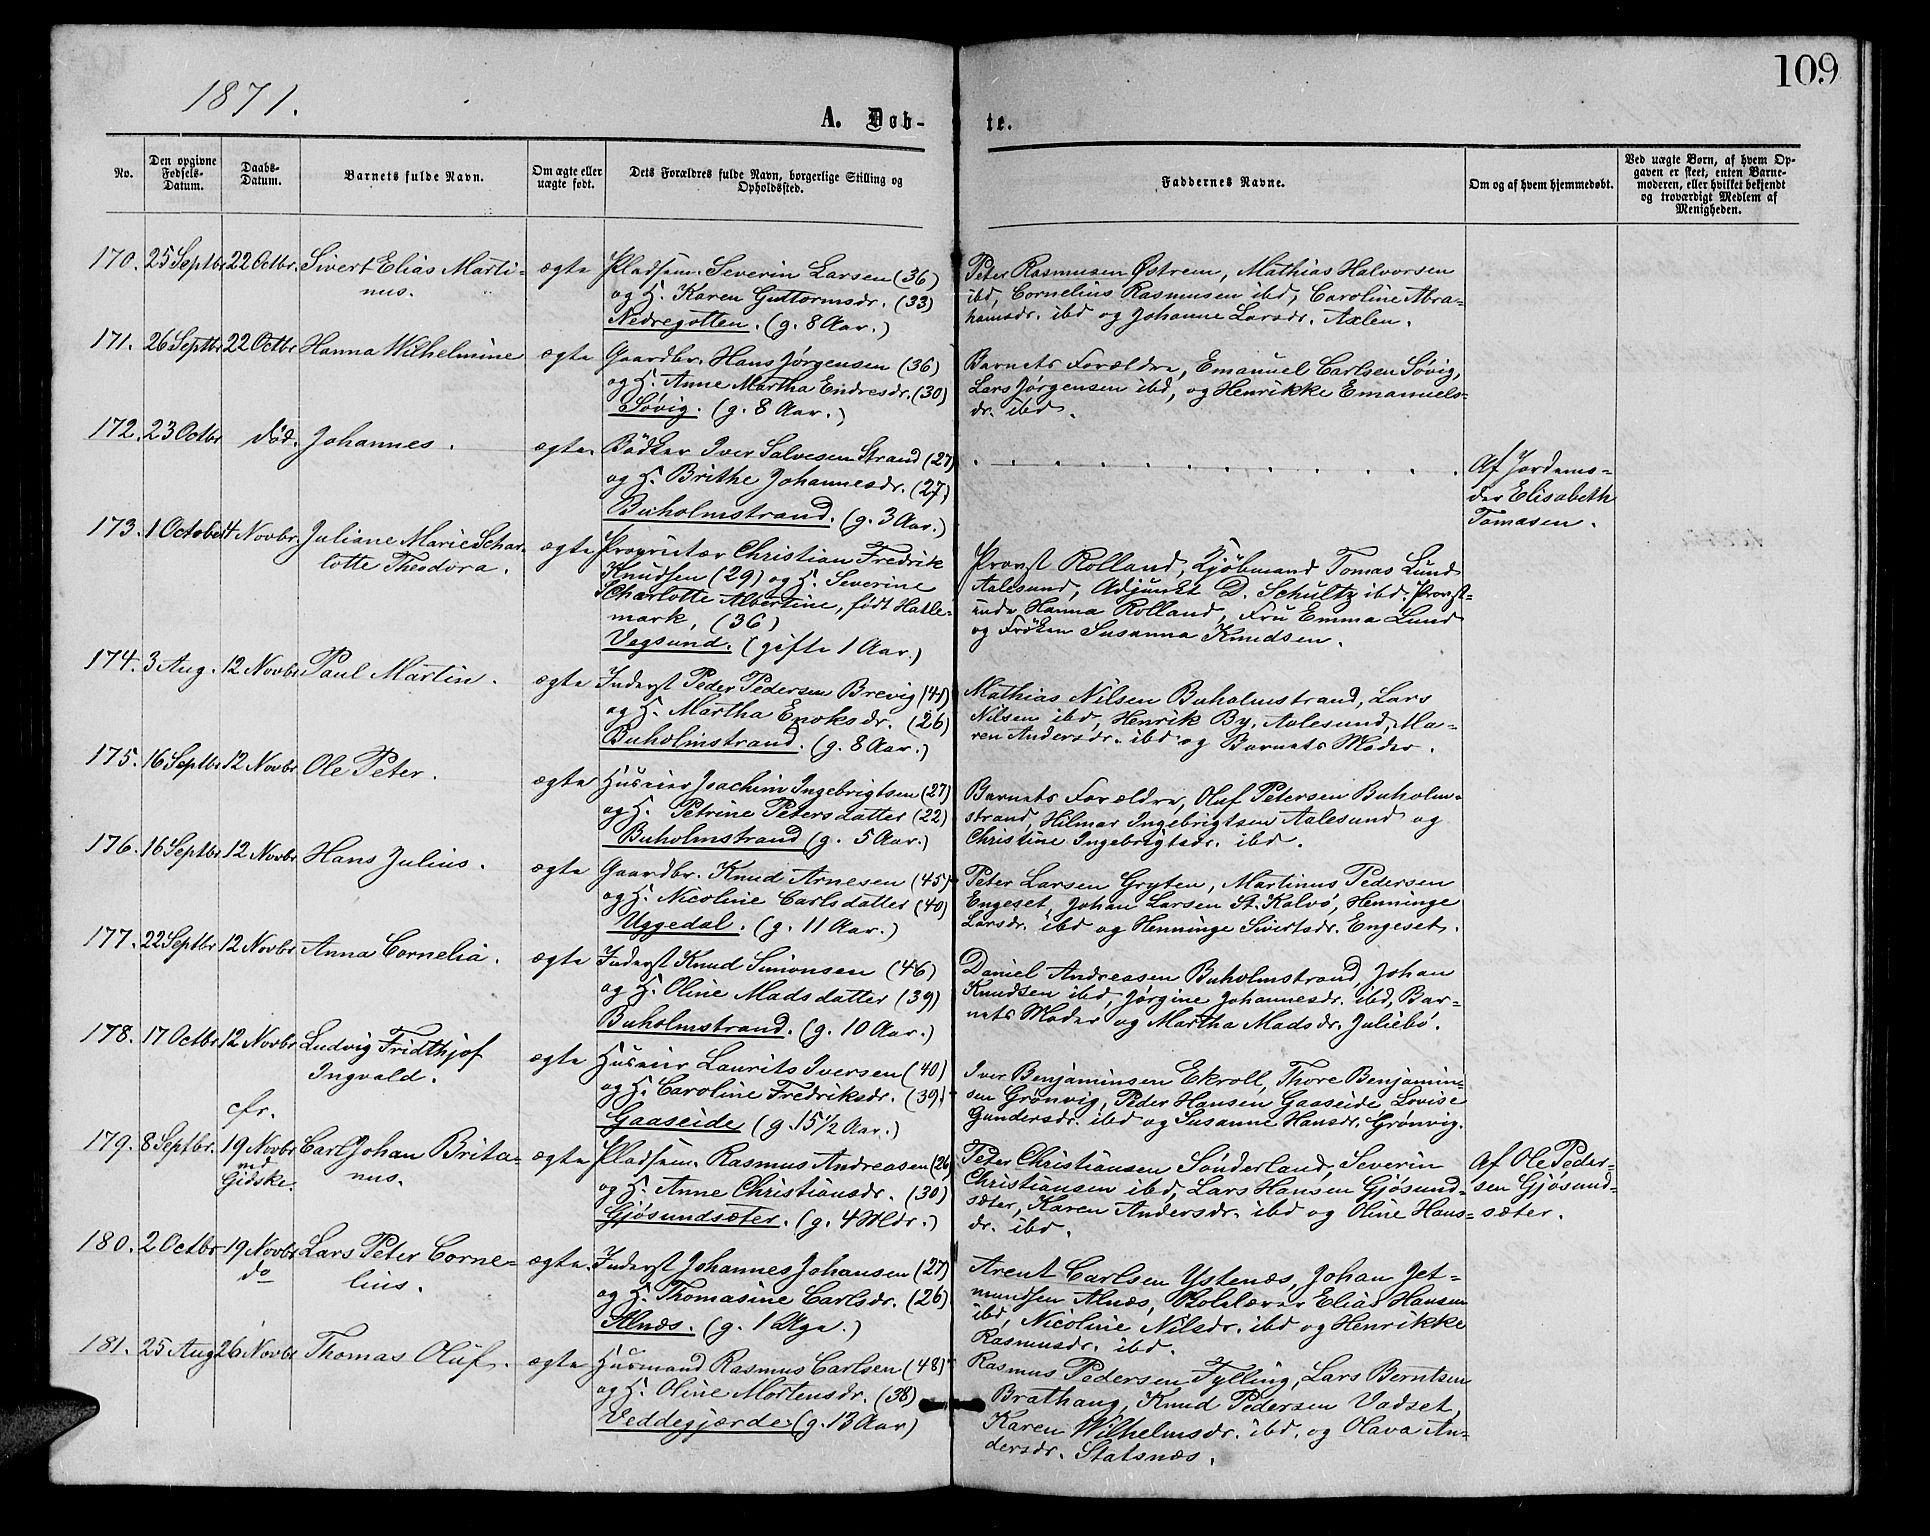 109
1871.
A. Døb- te.
No.
Den opgivne
Fødsels-
Datum.
Daabs-
Datum.
Barnets fulde Navn.
Om ægte eller
uægte født.
Dets Forældres fulde Navn, borgerlige Stilling og
Opholdssted.
Faddernes Navne.
Om og af hvem hjemmedøbt.
Ved uægte Børn, af hvem Op-
gaven er skeet, enten Barne-
moderen, eller hvilket bekjendt
og troværdigt Medlem af
Menigheden.
170. 25 Septbr 22 Octbr. Sivert Elias Marti-
nus.
ægte
Pladsm. Severin Larsen (36)
og H. Karen Guttormsdr. (33)
Nedregotten. (g. 8 Aar.)
Peter Rasmusen Østrem, Mathias Halvorsen
ibd, Cornelius Rasmusen ibd, Caroline Abra-
hamsdr. ibd og Johanne Larsdr. Axlen.
171. 26 Septbr 22 Octbr Hanna Wilhelmine
ægte
Gaardbr. Hans Jørgensen (36)
og H. Anne Martha Endresdr. (30)
Søvig. (g. 8 Aar.)
Barnets Forældre, Emanuel Carlsen Søvig,
Lars Jørgensen ibd, og Henrikke Emanuels-
dr. ibd.
172. 23 Octbr død. Johannes.
ægte.
Bødker Iver Salvesen Strand (27)
og H. Brithe Johannesdr. (27)
Buholmstrand. (g. 3 Aar.)
. . . . . . . . . . . . .
Af Jordemo-
der Elisabeth
Tomasen.
173. 1 October 4 Novbr. Juliane Marie Schar-
lotte Theodora.
ægte
Proprietær Christian Fredrik
Knudsen (29) og H. Severine
Scharlotte Albertine, født Hatle-
mark, (36)
Vegsund. (gifte 1 Aar.)
Provst Rolland, Kjøbmand Tomas Lund
Aalesund, Adjunkt D. Schultz ibd. Provst-
inde Hanna Rolland, Fru Emma Lund
og Frøken Susanna Knudsen.
174. 3 Aug. 12 Novbr Paul Martin.
ægte
Inderst Peder Pedersen Brevig (41)
og H. Martha Enoksdr. (26)
Buholmstrand. (g. 8 Aar.)
Mathias Nilsen Buholmstrand, Lars
Nilsen ibd, Henrik By, Aalesund, Ma-
ren Andersdr. ibd og Barnets Moder.
175. 16 Septbr 12 Novbr. Ole Peter.
ægte
Huseier Joachim Ingebrigtsen (27)
og H. Petrine Petersdatter (22)
Buholmstrand (g. 5 Aar.)
Barnets Forældre, Oluf Petersen Buholm-
strand, Hilmar Ingebrigtsen Aalesund og
Christine Ingebrigtsdr. ibd.
176. 16 Septbr. 12 Novbr. Hans Julius.
ægte
Gaardbr. Knud Arnesen (45)
og H. Nicoline Carlsdatter (40)
Uggedal. (g. 11 Aar.)
Peter Larsen Gryten, Martinus Pedersen
Engeset, Johan Larsen St. Kalvø, Henninge
Larsdr. ibd og Henninge Sivertsdr. Engeset.
177. 22 Septbr 12 Novbr Anna Cornelia.
ægte
Inderst Knud Simonsen (46)
og H. Oline Madsdatter (39)
Buholmstrand. (g. 10 Aar.)
Daniel Andreasen Buholmstrand, Johan
Knudsen ibd, Jørgine Johannesdr. ibd, Bar-
nets Moder og Martha Madsdr. Juliebø.
178. 17 Octbr 12 Novbr Ludvig Fridthjof
Ingvald.
ægte
Huseier Laurits Iversen (40)
og H. Caroline Fredriksdr. (39)
Gaaseide (g. 15 1/2 Aar.)
Iver Benjaminsen Ekroll, Thore Benjamin-
sen Grønvig, Peder Hansen Gaaseide, Lovise
Gundersdr. ibd og Susanne Hansdr. Grønvig.
cfr.
179. 8 Septbr. 19 Novbr Carl Johan Brita-
nus.
ved
Gidske.
ægte
Pladsm. Rasmus Andreasen (26)
og H. Anne Christiansdr. (30)
Gjøsundsæter. (g. 4 Mdr.)
Peter Christiansen Sønderland, Severin
Christiansen ibd, Lars Hansen Gjøsund-
sæter, Karen Andersdr. ibd og Oline Hans-
dr. ibd.
Af Ole Peder-
sen Gjøsund-
sæter.
180. 2 Octbr 19 Novbr Lars Peter Corne-
do
lius.
ægte.
Inderst Johannes Johansen (27)
og H. Thomasine Carlsdr. (26)
Alnæs. (g. 1 Uge.)
Arent Carlsen Ystenæs, Johan Jet-
mundsen Alnæs, Skolelærer Elias Hansen
ibd, Nicoline Nilsdr. ibd og Henrikke
Rasmusdr. ibd.
181. 25 Aug 26 Novbr Thomas Oluf.
ægte
Husmand Rasmus Carlsen (48)
og H. Oline Mortensdr. (38)
Veddegjærde. (g. 13 Aar)
Rasmus Pedersen Fylling, Lars Berntsen
Brathaug, Knud Pedersen Vadset,
Karen Wilhelmsdr. ibd. og Olava An-
dersdr. Statsnæs.